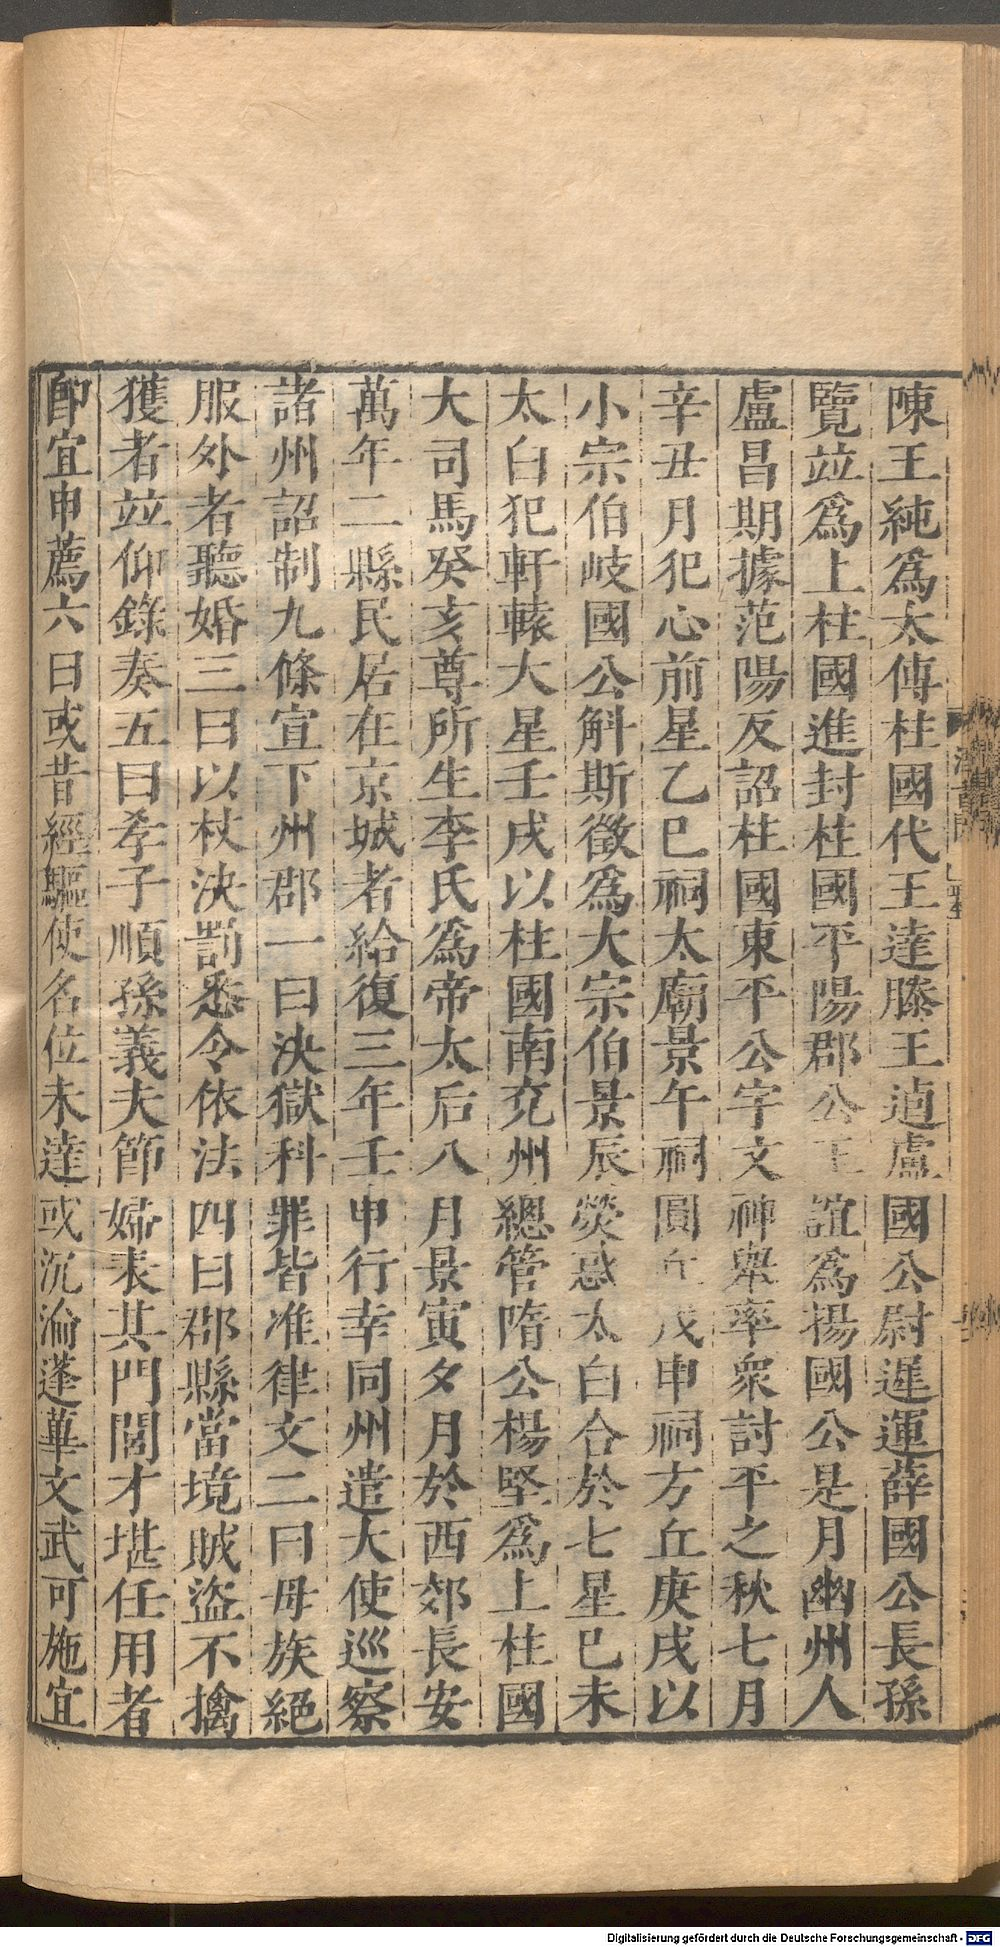 陳王純爲太傅柱國代王達滕王逌盧國公尉遲運薛國公長孫
覽竝爲上柱國進封柱國平陽郡公王誼爲揚國公是月幽州人
盧昌期據范陽反詔柱國東平公宇文神舉率衆討平之秋七月
辛丑月犯心前星乙巳祠太廟景午祠圓丘戊申祠方丘庚戌以
小宗伯岐國公斛斯徵爲大宗伯景辰熒惑太白合於七星己未
太白犯軒轅大星壬戌以柱國南兖州總管隋公楊堅爲上柱國
大司馬癸亥尊所生李氏爲帝太后八月景寅夕月於西郊長安
萬年二縣民居在京城者給復三年壬申行幸同州遣大使巡察
諸州詔制九條宣下州郡一曰決獄科罪皆准律文二曰母族絕
服外者聽婚三曰以杖決罰悉令依法四曰郡縣當境賊盜不擒
獲者竝仰錄奏五曰孝子順孫義夫節婦表其門閭才堪任用者
卽宜申薦六曰或昔經驅使名位未達或沉淪蓬蓽文武可施宜
Digitalisierung gefördert durch die Deutsche Forschungsgemeinschaft - DFG